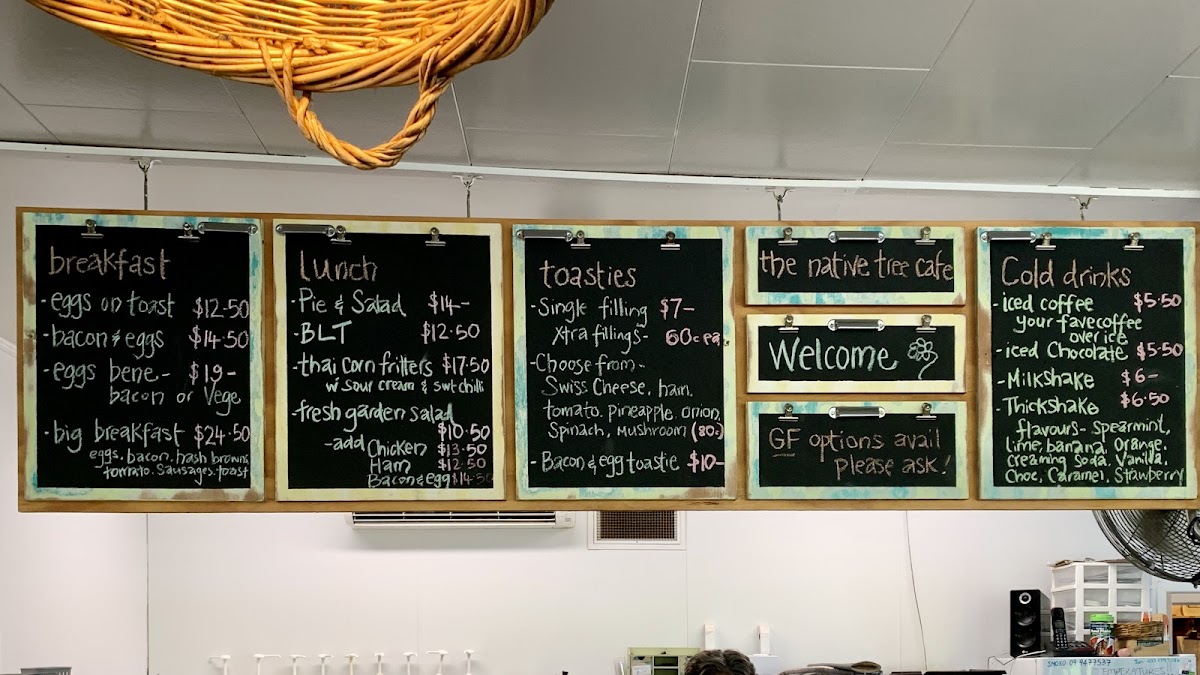 breakfast
- eggs on toast $12.50
- bacon & eggs $14.50
- eggs bene - $19-
bacon or Vege
- big breakfast $24.50
eggs, bacon, hash browns
tomato. Sausages. toast
Lunch
- Pie & Salad $14-
- BLT $12.50
- thai corn fritters $17.50
w/ sour cream & swt chilli
- fresh garden salad
$10.50
- add Chicken $13.50
Ham $12.50
Bacon & egg $14.50
toasties
- Single filling $7-
Xtra fillings - 60c ea
- Choose from -
Swiss Cheese, ham,
tomato, pineapple, onion,
Spinach, Mushroom (80c)
- Bacon & egg toastie $10-
the native tree cafe
Welcome
GF options avail
please ask!
Cold drinks
- iced coffee $5.50
your fave coffee
over ice
- iced Chocolate $5.50
- Milkshake $6-
- Thickshake $6.50
flavours - Spearmint,
lime, banana, Orange,
Creaming Soda, Vanilla,
Choc, Caramel, Strawberry